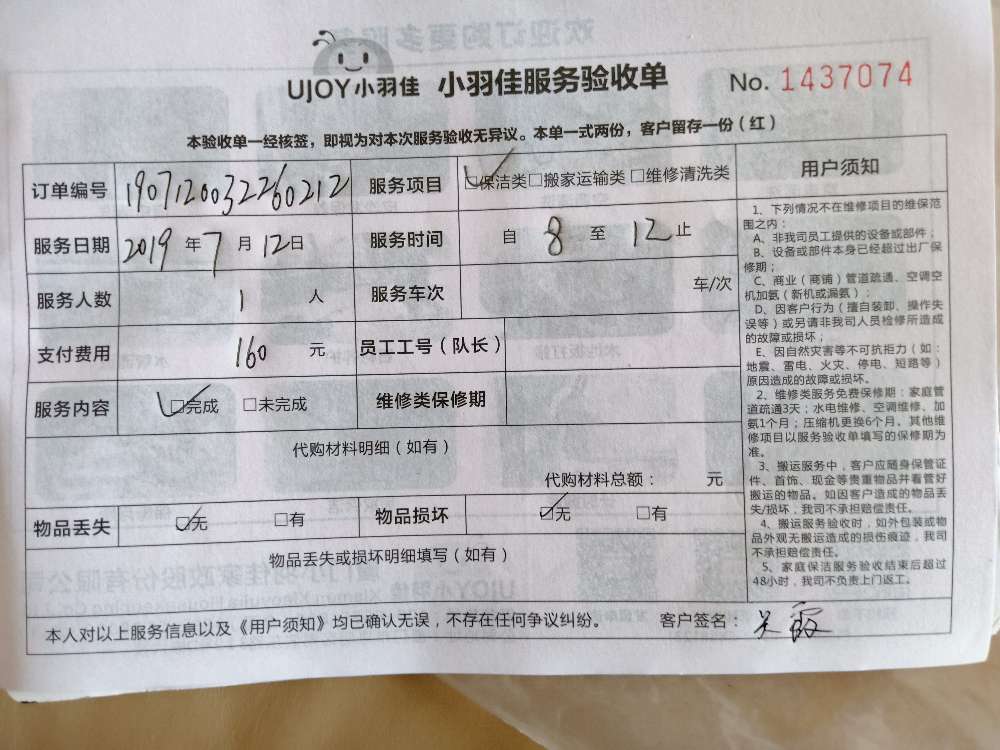 UJOY小羽佳 小羽佳服务验收单 No. 1437074
本验收单一经核签，即视为对本次服务验收无异议。本单一式两份，客户留存一份（红）
订单编号 1907120032260212 服务项目 保洁类□搬家运输类 □维修清洗类
服务日期 2019 年 7 月 12 日 服务时间 自 8 至 12 止
服务人数 1 人 服务车次 车/次
支付费用 160 元 员工工号（队长）
服务内容 □完成 □未完成 维修类保修期
代购材料明细（如有）
代购材料总额： 元
物品丢失 □无 □有 物品损坏 □无 □有
物品丢失或损坏明细填写（如有）
用户须知
1、下列情况不在维修项目的维保范
围之内：
A、非我司员工提供的设备或部件；
B、设备或部件本身已经超过出厂保
修期；
C、商业（商铺）管道疏通、空调空
机加氨（新机或漏氨）；
D、因客户行为（擅自装卸、操作失
误等）或另请非我司人员检修所造成
的故障或损坏；
E、因自然灾害等不可抗拒力（如：
地震、雷电、火灾、停电、短路等）
原因造成的故障或损坏。
2、维修类服务免费保修期：家庭管
道疏通3天；水电维修、空调维修、加
氨1个月；压缩机更换6个月。其他维
修项目以服务验收单填写的保修期为
准。
3、搬运服务中，客户应随身保管证
件、首饰、现金等贵重物品并看管好
搬运的物品。如因客户造成的物品丢
失/损坏，我司不承担赔偿责任。
4、搬运服务验收时，如外包装或物
品外观无搬运造成的损伤痕迹，我司
不承担赔偿责任。
5、家庭保洁服务验收结束后超过
48小时，我司不负责上门返工。
本人对以上服务信息以及《用户须知》均已确认无误，不存在任何争议纠纷。 客户签名： 吴霞